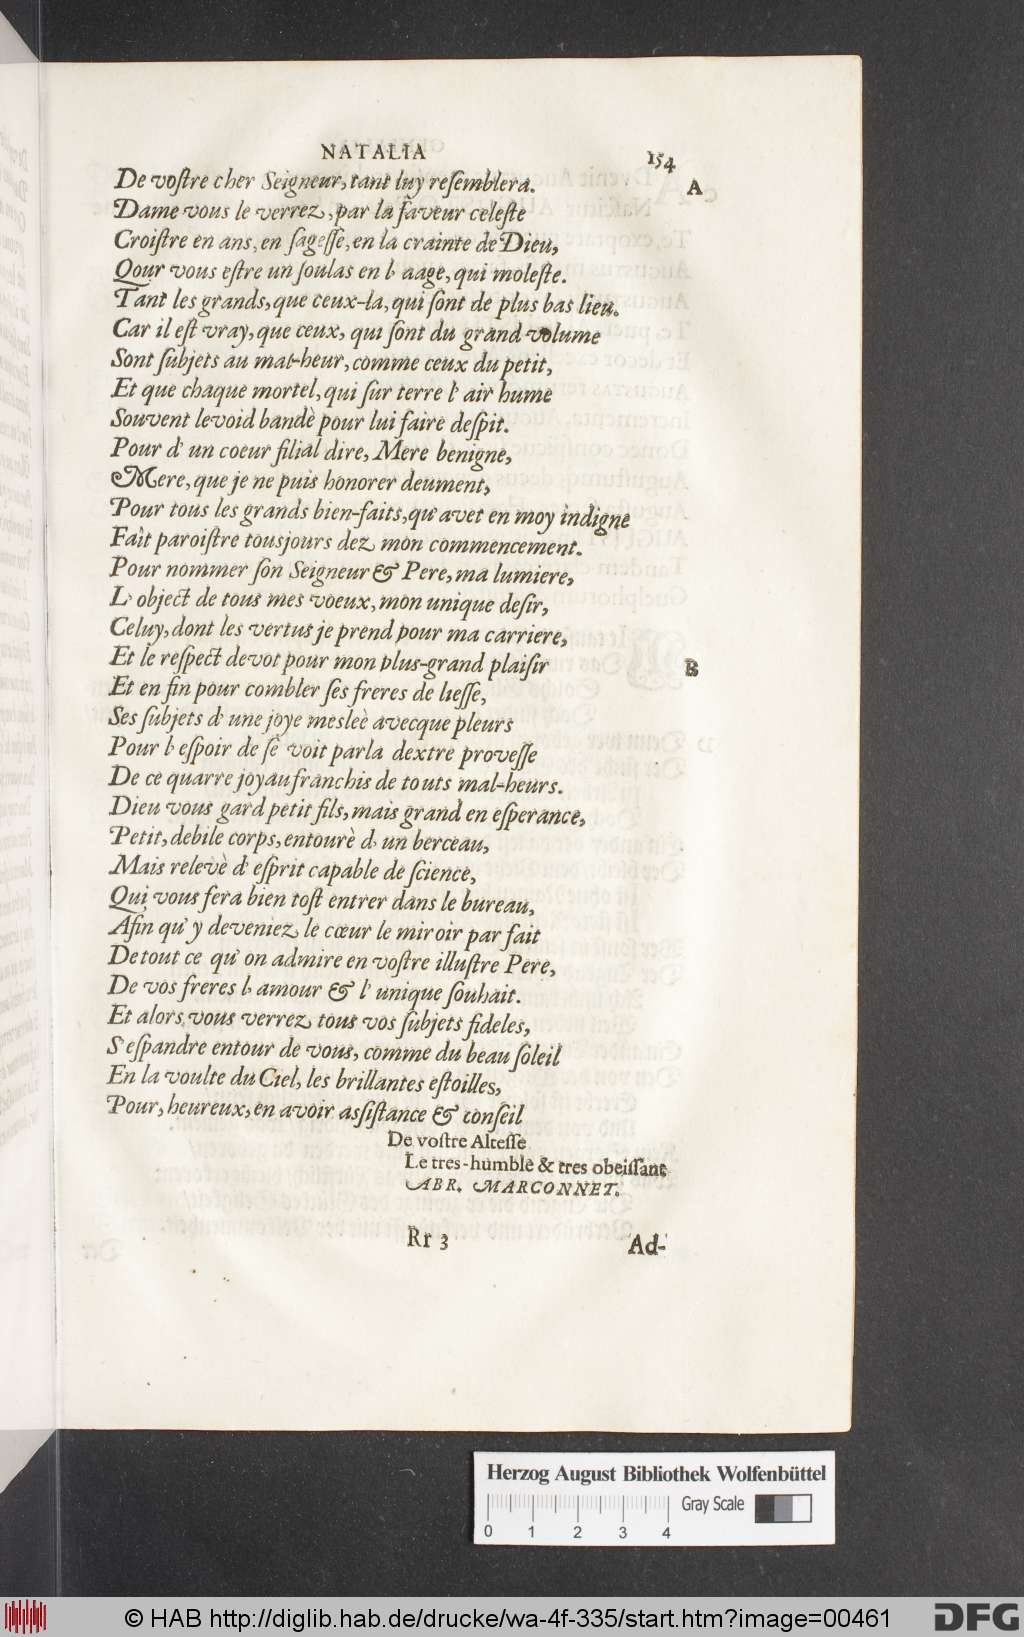 NATALIA 154
De voſtre cher Seigneur, tant luy reſemblera. A
Dame vous le verrez, par la faveur celeſte
Croiſtre en ans, en ſageſſe, en la crainte de Dieu,
Qour vous eſtre un ſoulas en l' aage, qui moleſte.
Tant les grands, que ceux-la, qui ſont de plus bas lieu.
Car il eſt vray, que ceux, qui ſont du grand volume
Sont ſubjets au mal-heur, comme ceux du petit,
Et que chaque mortel, qui ſur terre l' air hume
Souvent levoid bandè pour lui faire deſpit.
Pour d' un coeur filial dire, Mere benigne,
Mere, que je ne puis honorer deument,
Pour tous les grands bien-faits, qu' avet en moy indigne
Fait paroiſtre tousjours dez mon commencement.
Pour nommer ſon Seigneur & Pere, ma lumiere,
L' object de tous mes voeux, mon unique deſir,
Celuy, dont les vertus je prend pour ma carriere,
Et le reſpect devot pour mon plus-grand plaiſir B
Et en fin pour combler ſes freres de lieſſe,
Ses ſubjets d' une joye mesleè avecque pleurs
Pour l' eſpoir de ſe voit parla dextre proveſſe
De ce quarre joyau franchis de touts mal-heurs.
Dieu vous gard petit fils, mais grand en eſperance,
Petit, debile corps, entourè d' un berceau,
Mais relevè d' eſprit capable de ſcience,
Qui vous fera bien toſt entrer dans le bureau,
Afin qu' y deveniez le cœur le miroir par fait
De tout ce qu' on admire en voſtre illuſtre Pere,
De vos freres l' amour & l' unique ſouhait.
Et alors vous verrez tous vos ſubjets fideles,
S' eſpandre entour de vous, comme du beau ſoleil
En la voulte du Ciel, les brillantes eſtoilles,
Pour, heureux, en avoir aſsiſtance & conſeil
De voſtre Alteſſe
Le tres-humble & tres obeiſſant
ABR. MARCONNET.
Rr 3 Ad-
Herzog August Bibliothek Wolfenbüttel
Gray Scale
0 1 2 3 4
© HAB http://diglib.hab.de/drucke/wa-4f-335/start.htm?image=00461
DFG